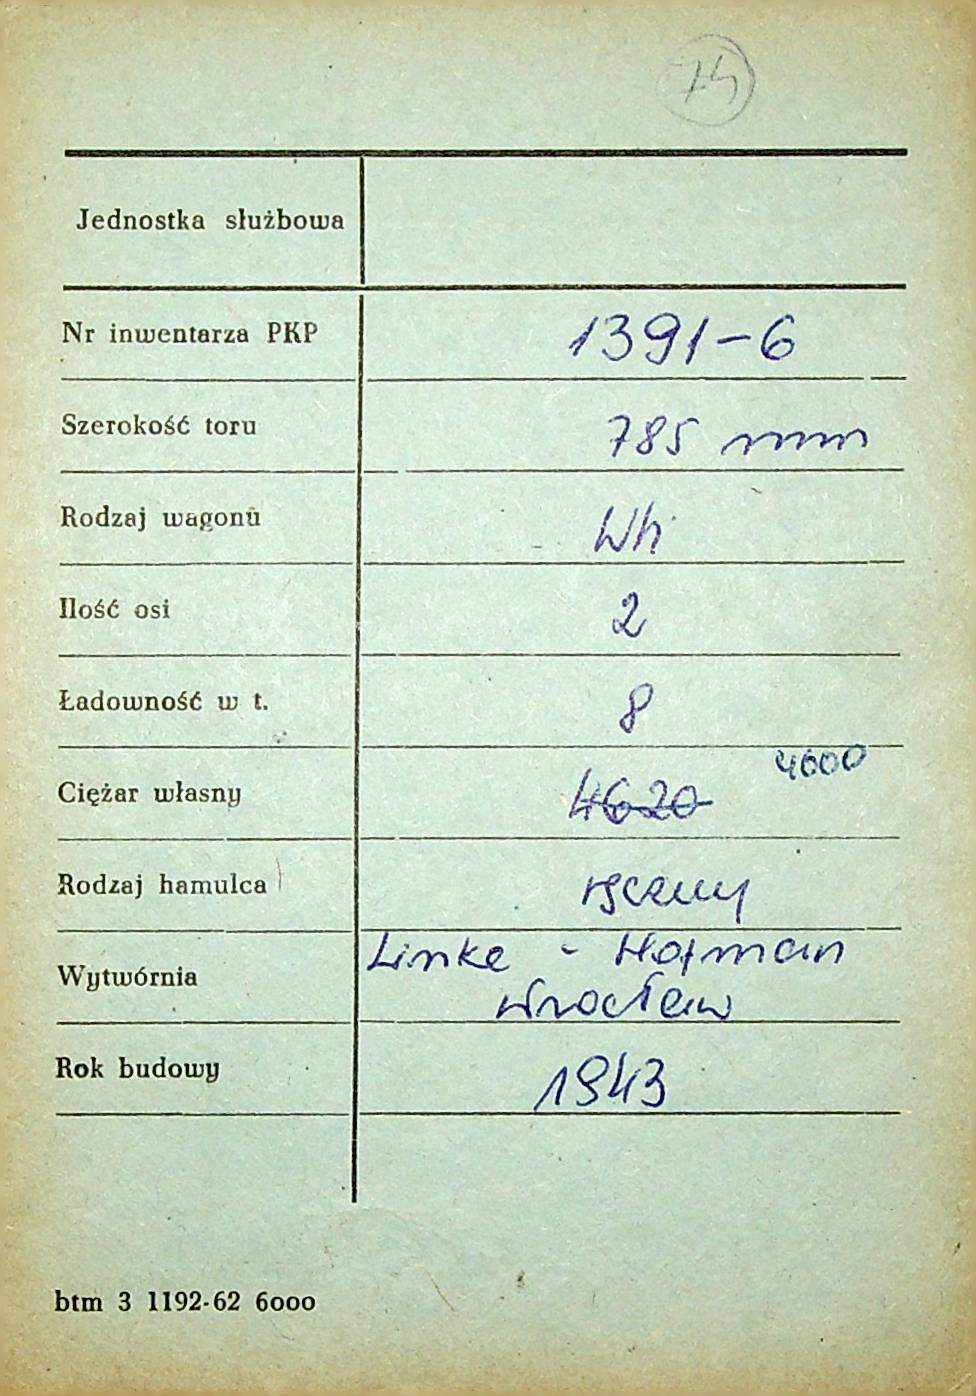 74
Jednostka służbowa
Nr inwentarza PKP 1391-6
Szerokość toru 785 mm
Rodzaj wagonu Wh
Ilość osi 2
Ładowność w t. 8
4600
Ciężar własny 4620
Rodzaj hamulca ręczny
Linke - Hofman
Wytwórnia
Wrocław
Rok budowy 1943
btm 3 1192-62 6000